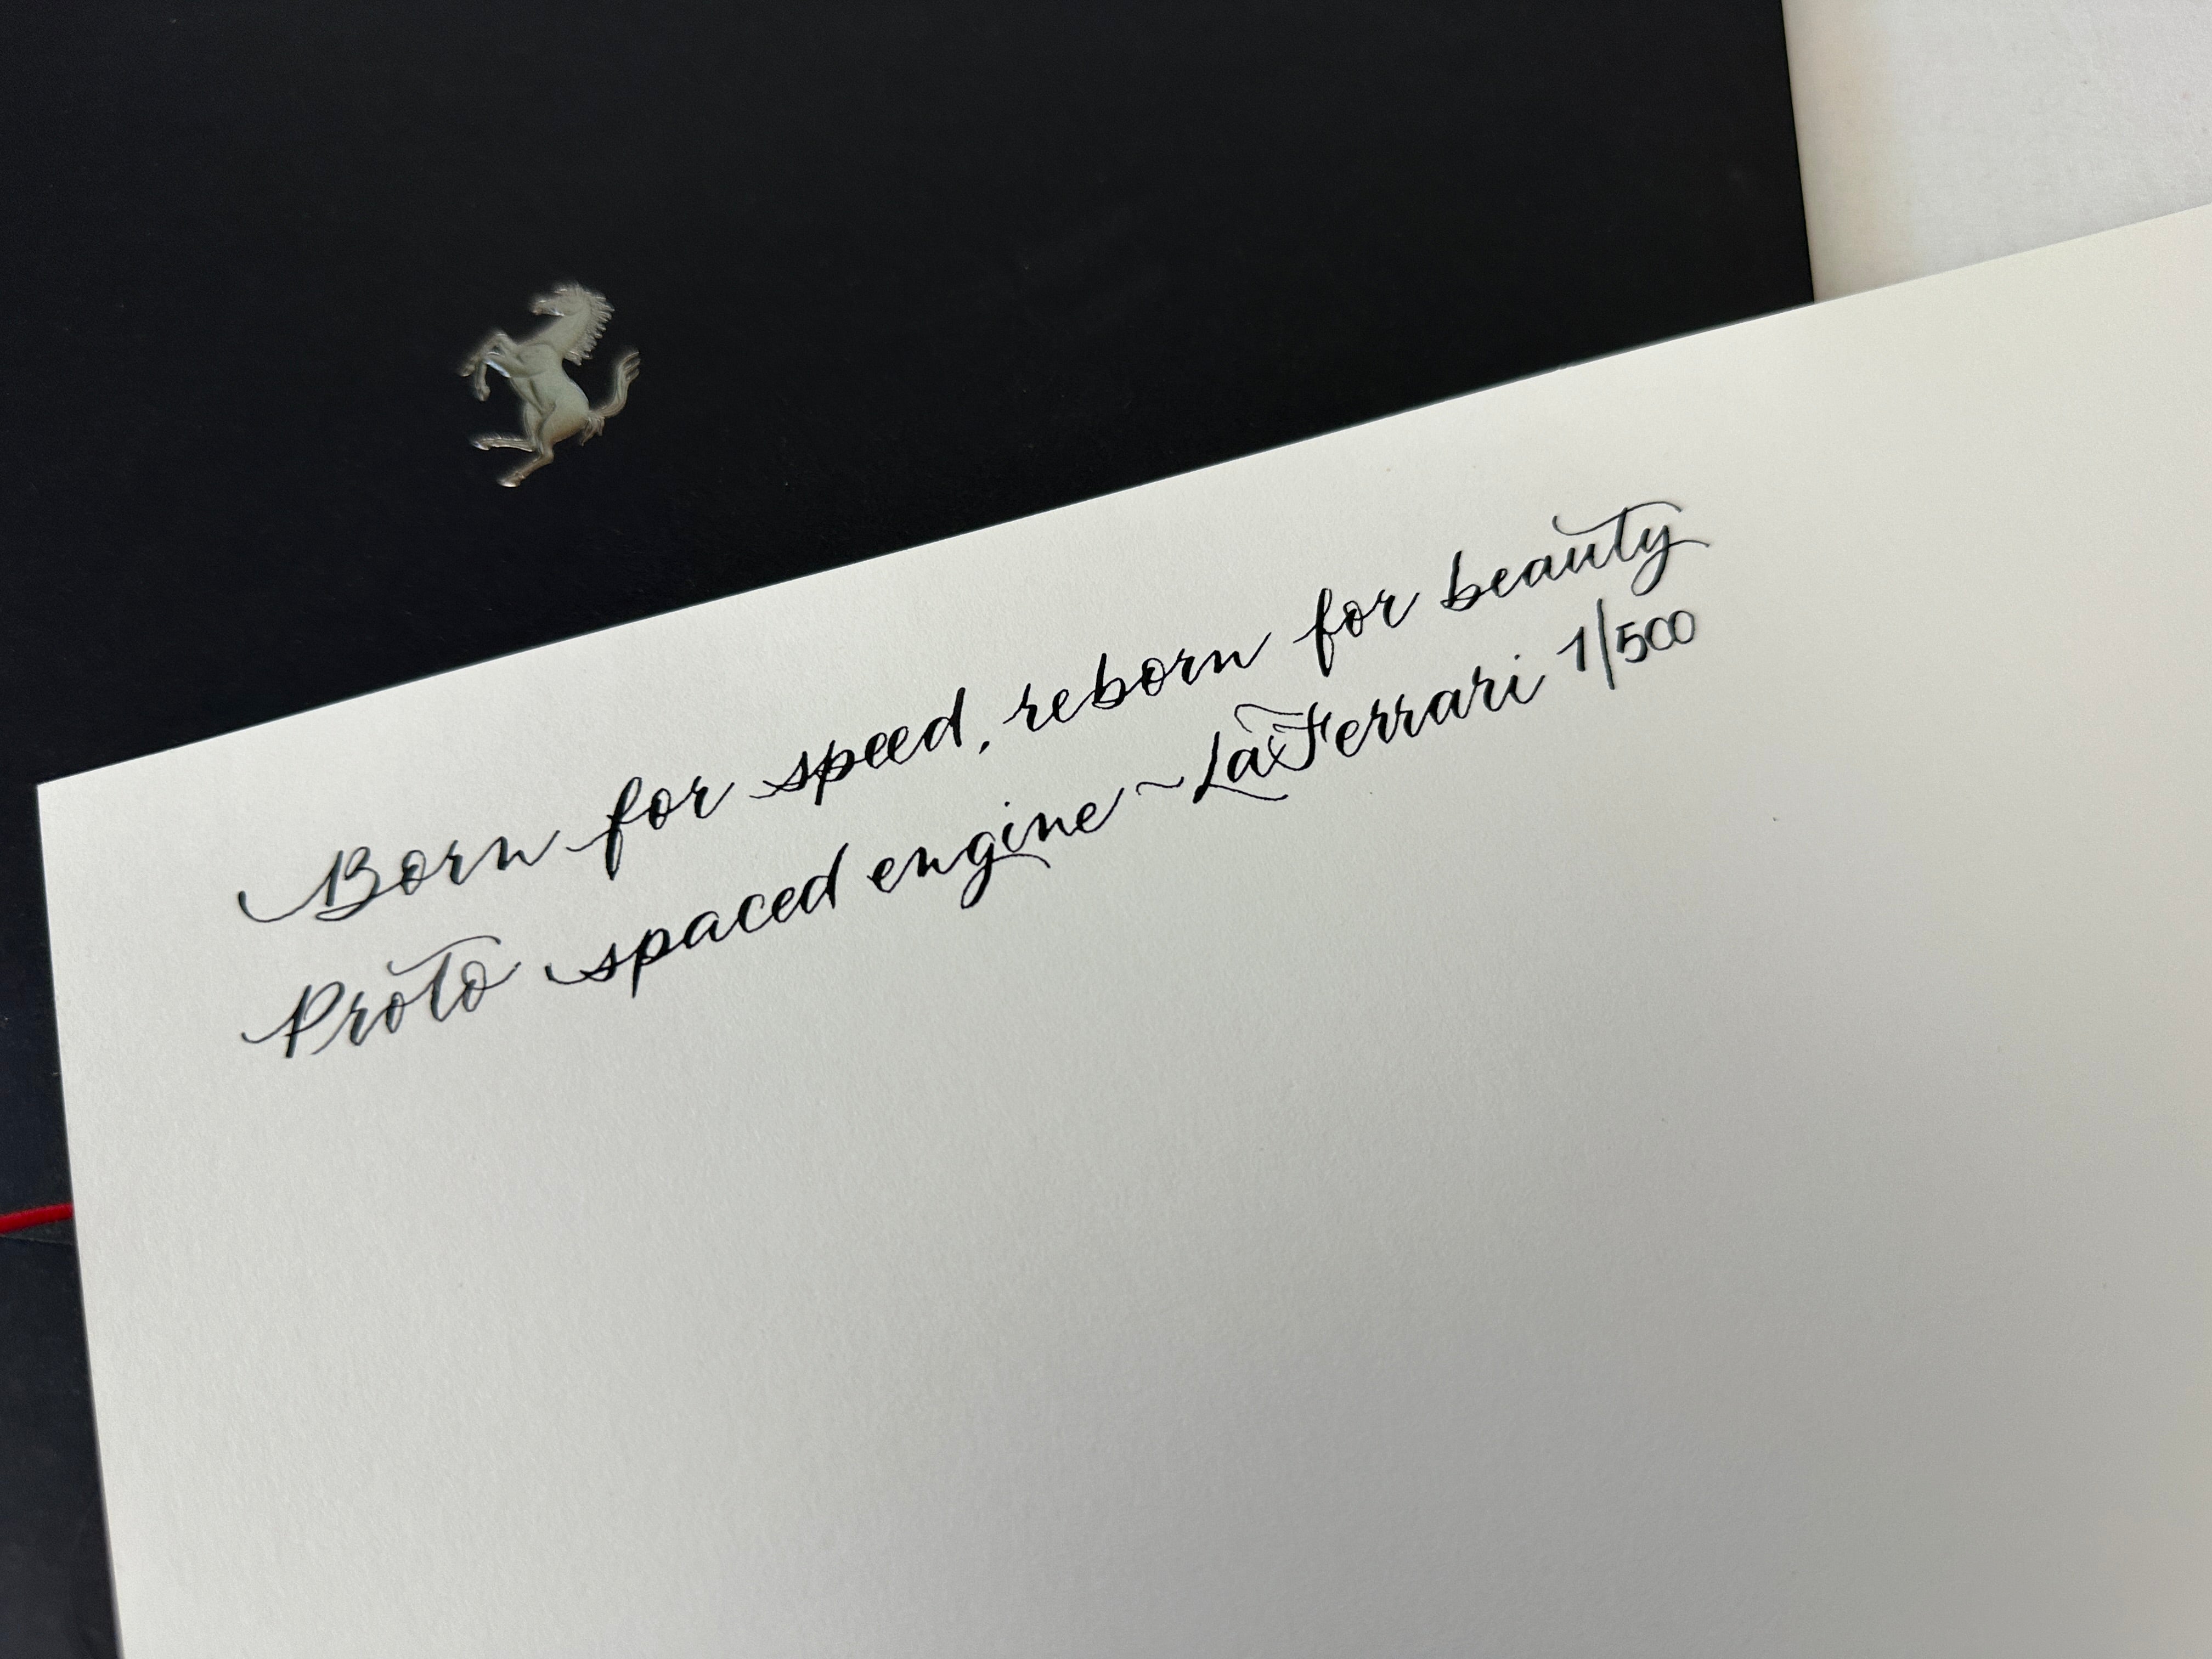 Born for speed, reborn for beauty
Proto spaced engine ~ LaFerrari 1/500